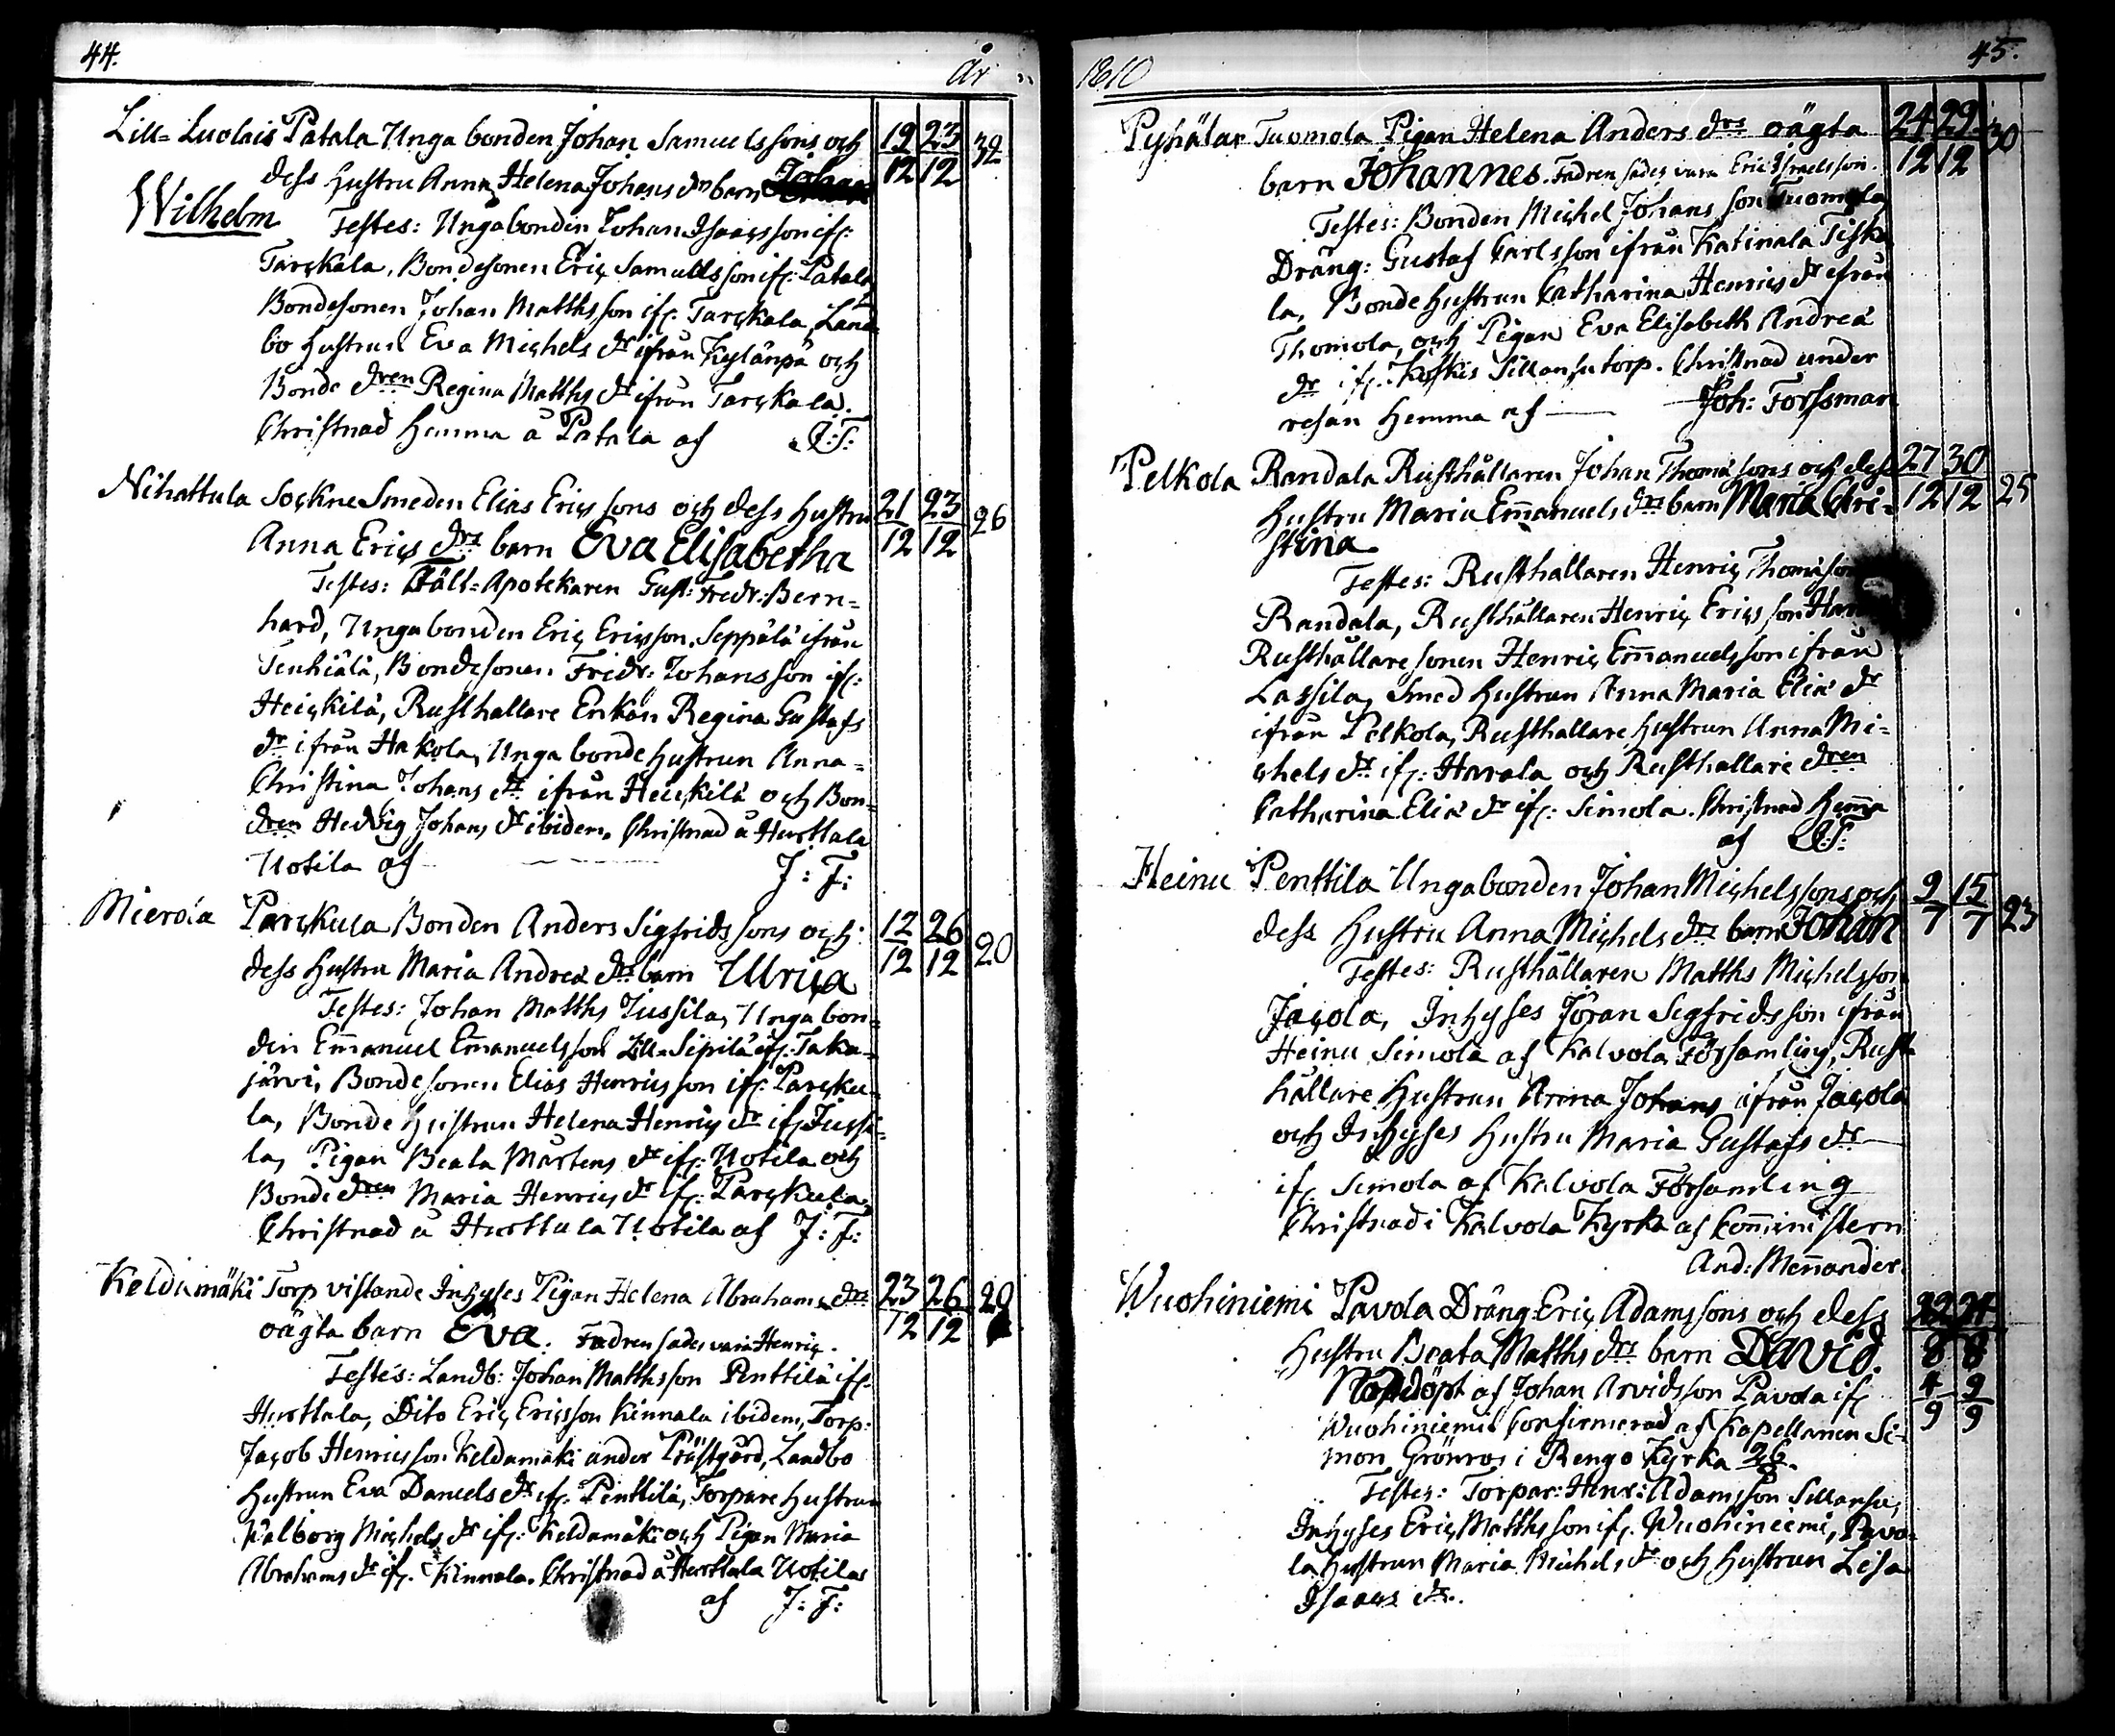 44.
År
Lill-Luolais Patala Unga bonden Johan Samuelssons och 19 23 32
dess hustru Anna Helena Johans drs barn 12 12
Wilhelm Testes: Ungabonden Johan Isaacsson if:
Tarckala, Bondesonen Eric Samuelsson if: Patala
Bondesonen Johan Matthsson if: Tarckala, Land
bo hustrun Eva Michels dr ifrån Kylänpä och
Bonde dren Regina Matths dr ifrån Tarckala.
Christnad hemma å Patala af J:F:
Nihattula SockneSmeden Elias Erics sons och dess hustru 21 23 26
Anna Erics drs barn Eva Elisabetha 12 12
Testes: Fält-Apotekaren Gust: Fredr: Bern=
hard, Ungabonden Eric Ericsson Seppälä ifrån
Tenhiälä, Bondesonen Fridr: Johansson if:
Heickilä, Rusthållare Enkan Regina Gustafs
dr ifrån Hakola, Unga bonde hustrun Anna=
Christina Johans dr ifrån Heickilä och Bon=
dren Hedvig Johans dr ibidem. Christnad å Hurttala
Uotila af J: F:
Mierola Parckula Bonden Anders Sigfrids sons och 12 26 20
dess hustru Maria Andreæ drs barn Ulrica 12 12
Testes: Johan Matths Jussila, Unga bon=
den Emanuel Emanuelsson Lill-Sipilä if: Taka=
järvi, Bondesonen Elias Henricsson if: Parcku=
la, Bonde hustrun Helena Henrics dr if: Jussi=
la, Pigan Beata Mårtens dr if: Uotila och
Bonde dren Maria Henrics dr if: Parckula,
Christnad å Hurttula Uotila af J: F:
Keldamäki Torp vistande Inhyses Pigan Helena Abrahams drs 23 26 20
oägta barn Eva. Fadren sades vara Henric. 12 12
Testes: Landb: Johan Matthsson Penttilä if:
Hurttala, Dito Eric Ericsson Kinnala ibidem, Torp:
Jacob Henricsson Keldamäki under Prästgård, Landbo
hustrun Eva Daniels dr if: Penttilä, Torpare hustrun
Walborg Michels dr if: Keldamäki och Pigan Maria
Abrahams dr if. Kinnala. Christnad å Hurttula Uotilas
af J: F:
1810
45.
Pyhälax Tuomola Pigan Helena Anders drs oägta 24 29 30
barn Johannes. Fadren sades vara Eric Israelsson. 12 12
Testes: Bonden Michel Johans son Tuomola,
Dräng: Gustaf Carlsson ifrån Katinala Tiska
la, Bonde hustrun Catharina Henrics dr ifrån
Thomola, och Pigan Eva Elisabeth Andreæ
dr if: Koskis Sillansu torp. Christnad under
resan hemma af Joh: Forssman
Pelkola Randala Rusthållaren Johan Thomæ sons och dess 27 30 25
hustru Maria Emanuels drs barn Maria Chri= 12 12
stina
Testes: Rusthållaren Henric Thomæson
Randala, Rusthållaren Henric Erics son
Rusthållaresonen Henric Emanuelsson ifrån
Lassila, Smed hustrun Anna Maria Eliæ dr
ifrån Pelkola, Rusthållare hustrun Anna Mi=
chels dr if: Harala och Rusthållare dren
Catharina Eliæ dr if: Simola. Christnad hemma
af J:F:
Heinu Penttilä Ungabonden Johan Michelssons och 9 15 23
dess hustru Anna Michels drs barn Johan 7 7
Testes: Rusthållaren Matths Michelsson
Jacola, Inhyses Jöran Segfridsson ifrån
Heinu Simola af Kalvola Församling, Rust
hållare hustrun Anna Johans ifrån Jacola
och Inhyses hustru Maria Gustafs dr
if: Simola af Kalvola Församling
Christnad i Kalvola Kyrka af Comministern
And: Mennander.
Wuohiniemi Pavola Dräng Eric Adamssons och dess 22 24
hustru Beata Matths drs barn David. 8 8
Nöddöpt af Johan Arvidsson Pavola if 4 9
Wuohiniemi Confirmerad af Kapellanen Si= 9 9
mon Grönros i Rengo Kyrka 26/8.
Testes: Torpar: Henr: Adamsson Sillansu,
Inhyses Eric Matthsson if: Wuohiniemi, Pavo=
la hustrun Maria Michels dr och hustrun Lisa
Isaacs dr.